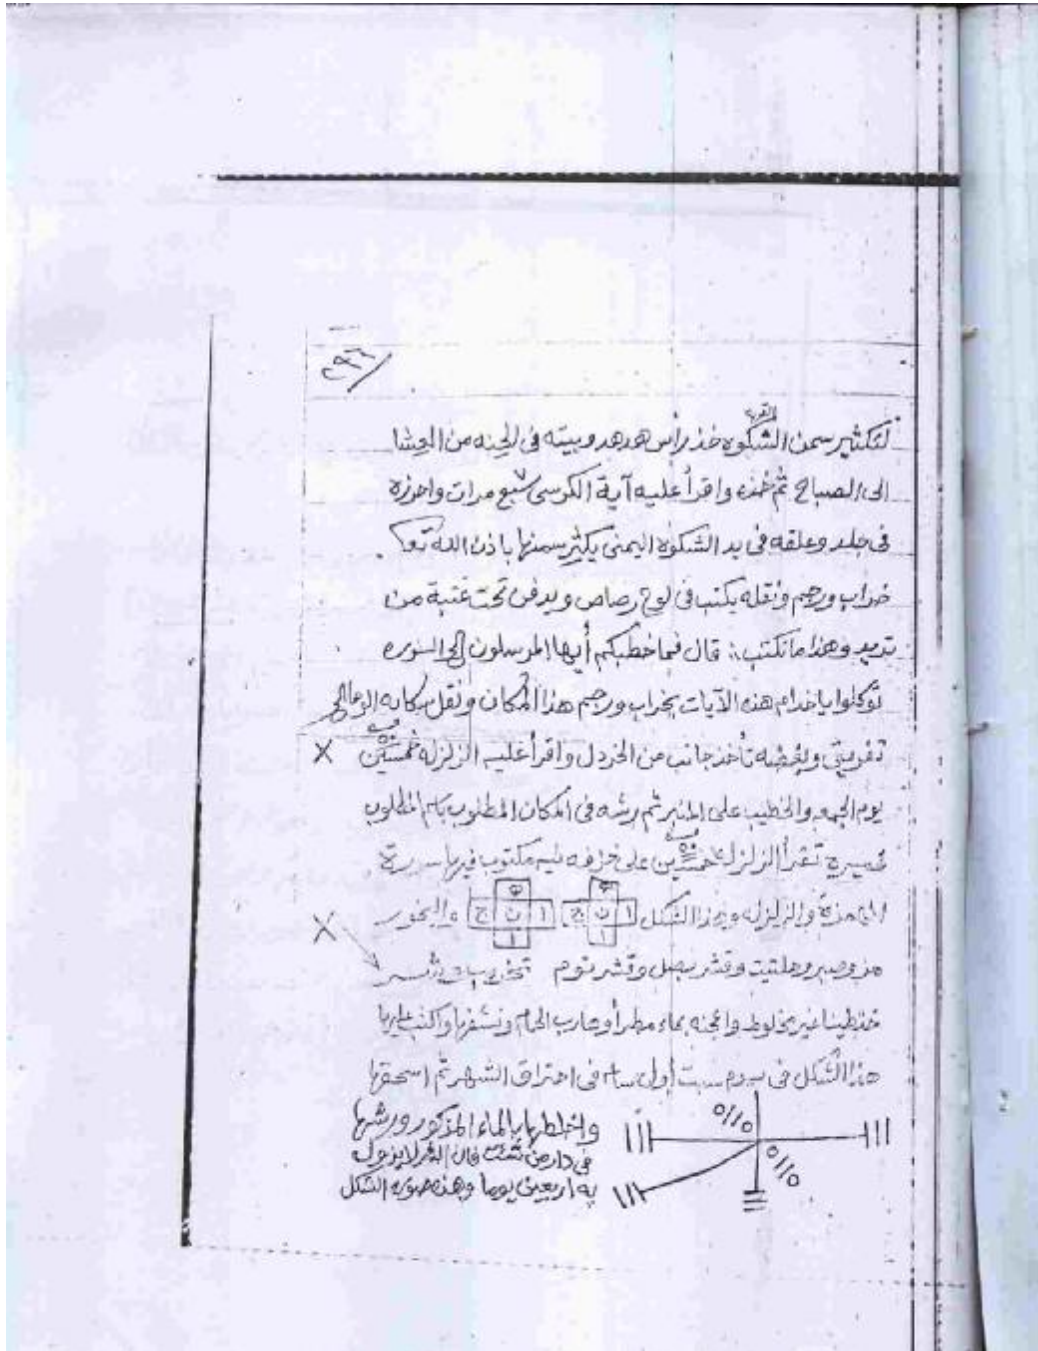 ٢٩٦
القربه
لتكثير سمن الشكوه خذ رأس هدهد وبيته فى الجنه من العشا
الى الصباح ثم خذه واقرأ عليه آية الكرسى ٧ سبع مرات واحرزه
فى جلد وعلقه فى يد الشكوه اليمنى يكثر سمنها باذن الله تعا
خراب ورجم ونقله يكتب فى لوح رصاص ويدفن تحت عتبة من
تريد وهذا ما تكتب: قال فما خطبكم أيها المرسلون إلى
توكلوا يا خدام هذه الآيات بخراب ورجم هذا المكان ونقل سكانه
تفريق وبغضه تأخذ جانب من الخردل واقرأ عليه الزلزله خمسين ٥٠ X
يوم الجمعه والخطيب على المنبر ثم رشه فى المكان المطلوب باسم المطلوب
تقرأ الزلزله خمسين ٥٠ على خزفه نيه مكتوب فيها سورة
والزلزله وهذا الشكل ا ن ج ا ا ن ج ا والبخور
مر وصبر وحلتيت وقشر بصل وقشر توم X
خذ طينا غير مخلوط واعجنه بماء مطر أو ماء الحمام ونشفها واكتب عليها
هذا الشكل فى يوم سبت أول ساعه فى احتراق الشهر ثم اسحقها
واخلطها بالماء المذكور ورشها
فى دار من شئت فان الشر لا يزول
به اربعين يوما وهذه صوره الشكل